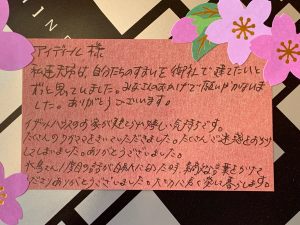 アイデール 様
私達夫婦は、自分たちのすまいを御社で建てたいと
ずっと思っていました。みなさんのおかげで願いがかないま
した。ありがとうございます。
のお家が建ち とても嬉しい気持ちです。
たくさんのワガママをきいていただきました。たくさんご迷惑をおかけ
してしまいました。ありがとうございました。
大鳥さん、1度目の話が白紙になった時、親切な言葉をかけて
くださりありがとうございました。大切に長く楽しく暮らします。